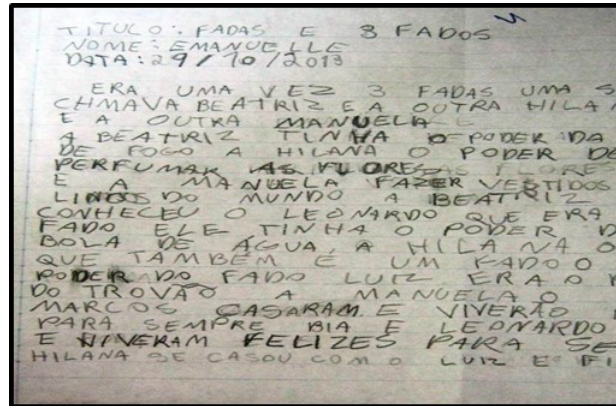 TITULO: FADAS E 3 FADOS
NOME: EMANUELLE
DATA: 29/10/2013
ERA UMA VEZ 3 FADAS UMA S
CHMAVA BEATRIZ E A OUTRA HILA
E A OUTRA MANUELA
A BEATRIZ TINHA O PODER DA
DE FOGO A HILANA O PODER DE
PERFUMAR AS FLORES AS FLORE
E A MANUELA FAZER VESTIDOS
LINDOS DO MUNDO A BEATRIZ
CONHECEU O LEONARDO QUE ERA
FADO ELE TINHA O PODER D
BOLA DE ÁGUA, A HILANA O
QUE TAMBÉM É UM FADO O
PODER DO FADO LUIZ ERA O
DO TROVÃO A MANUELA O
MARCOS CASARAM E VIVERÃO
PARA SEMPRE BIA E LEONARDO
E VIVERAM FELIZES PARA SE
HILANA SE CASOU COM O LUIZ E FI